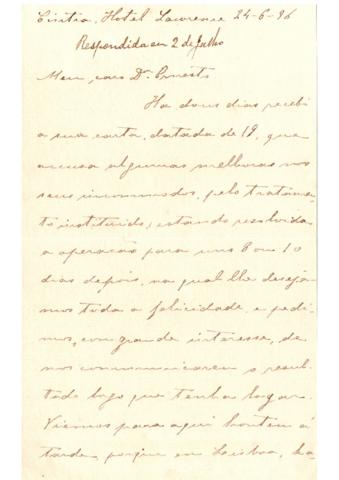 Cintra, Hotel Lawrence 24-6-96
Respondida em 2 de Julho
Meu caro Dr. Ernesto
Ha dous dias recebi
a sua carta, datada de 19, que
accusa algumas melhoras nos
seus incommodos, pelo tratamen-
to instituido; estando resolvida
a operacão para uns 8 ou 10
dias depois, na qual lhe deseja-
mos toda a felicidade, e pedi-
mos, com grande interesse, de
nos communicarem o resul-
tado logo que tenha logar.
Viemos para aqui hontem á
tarde, porque em Lisboa, ha